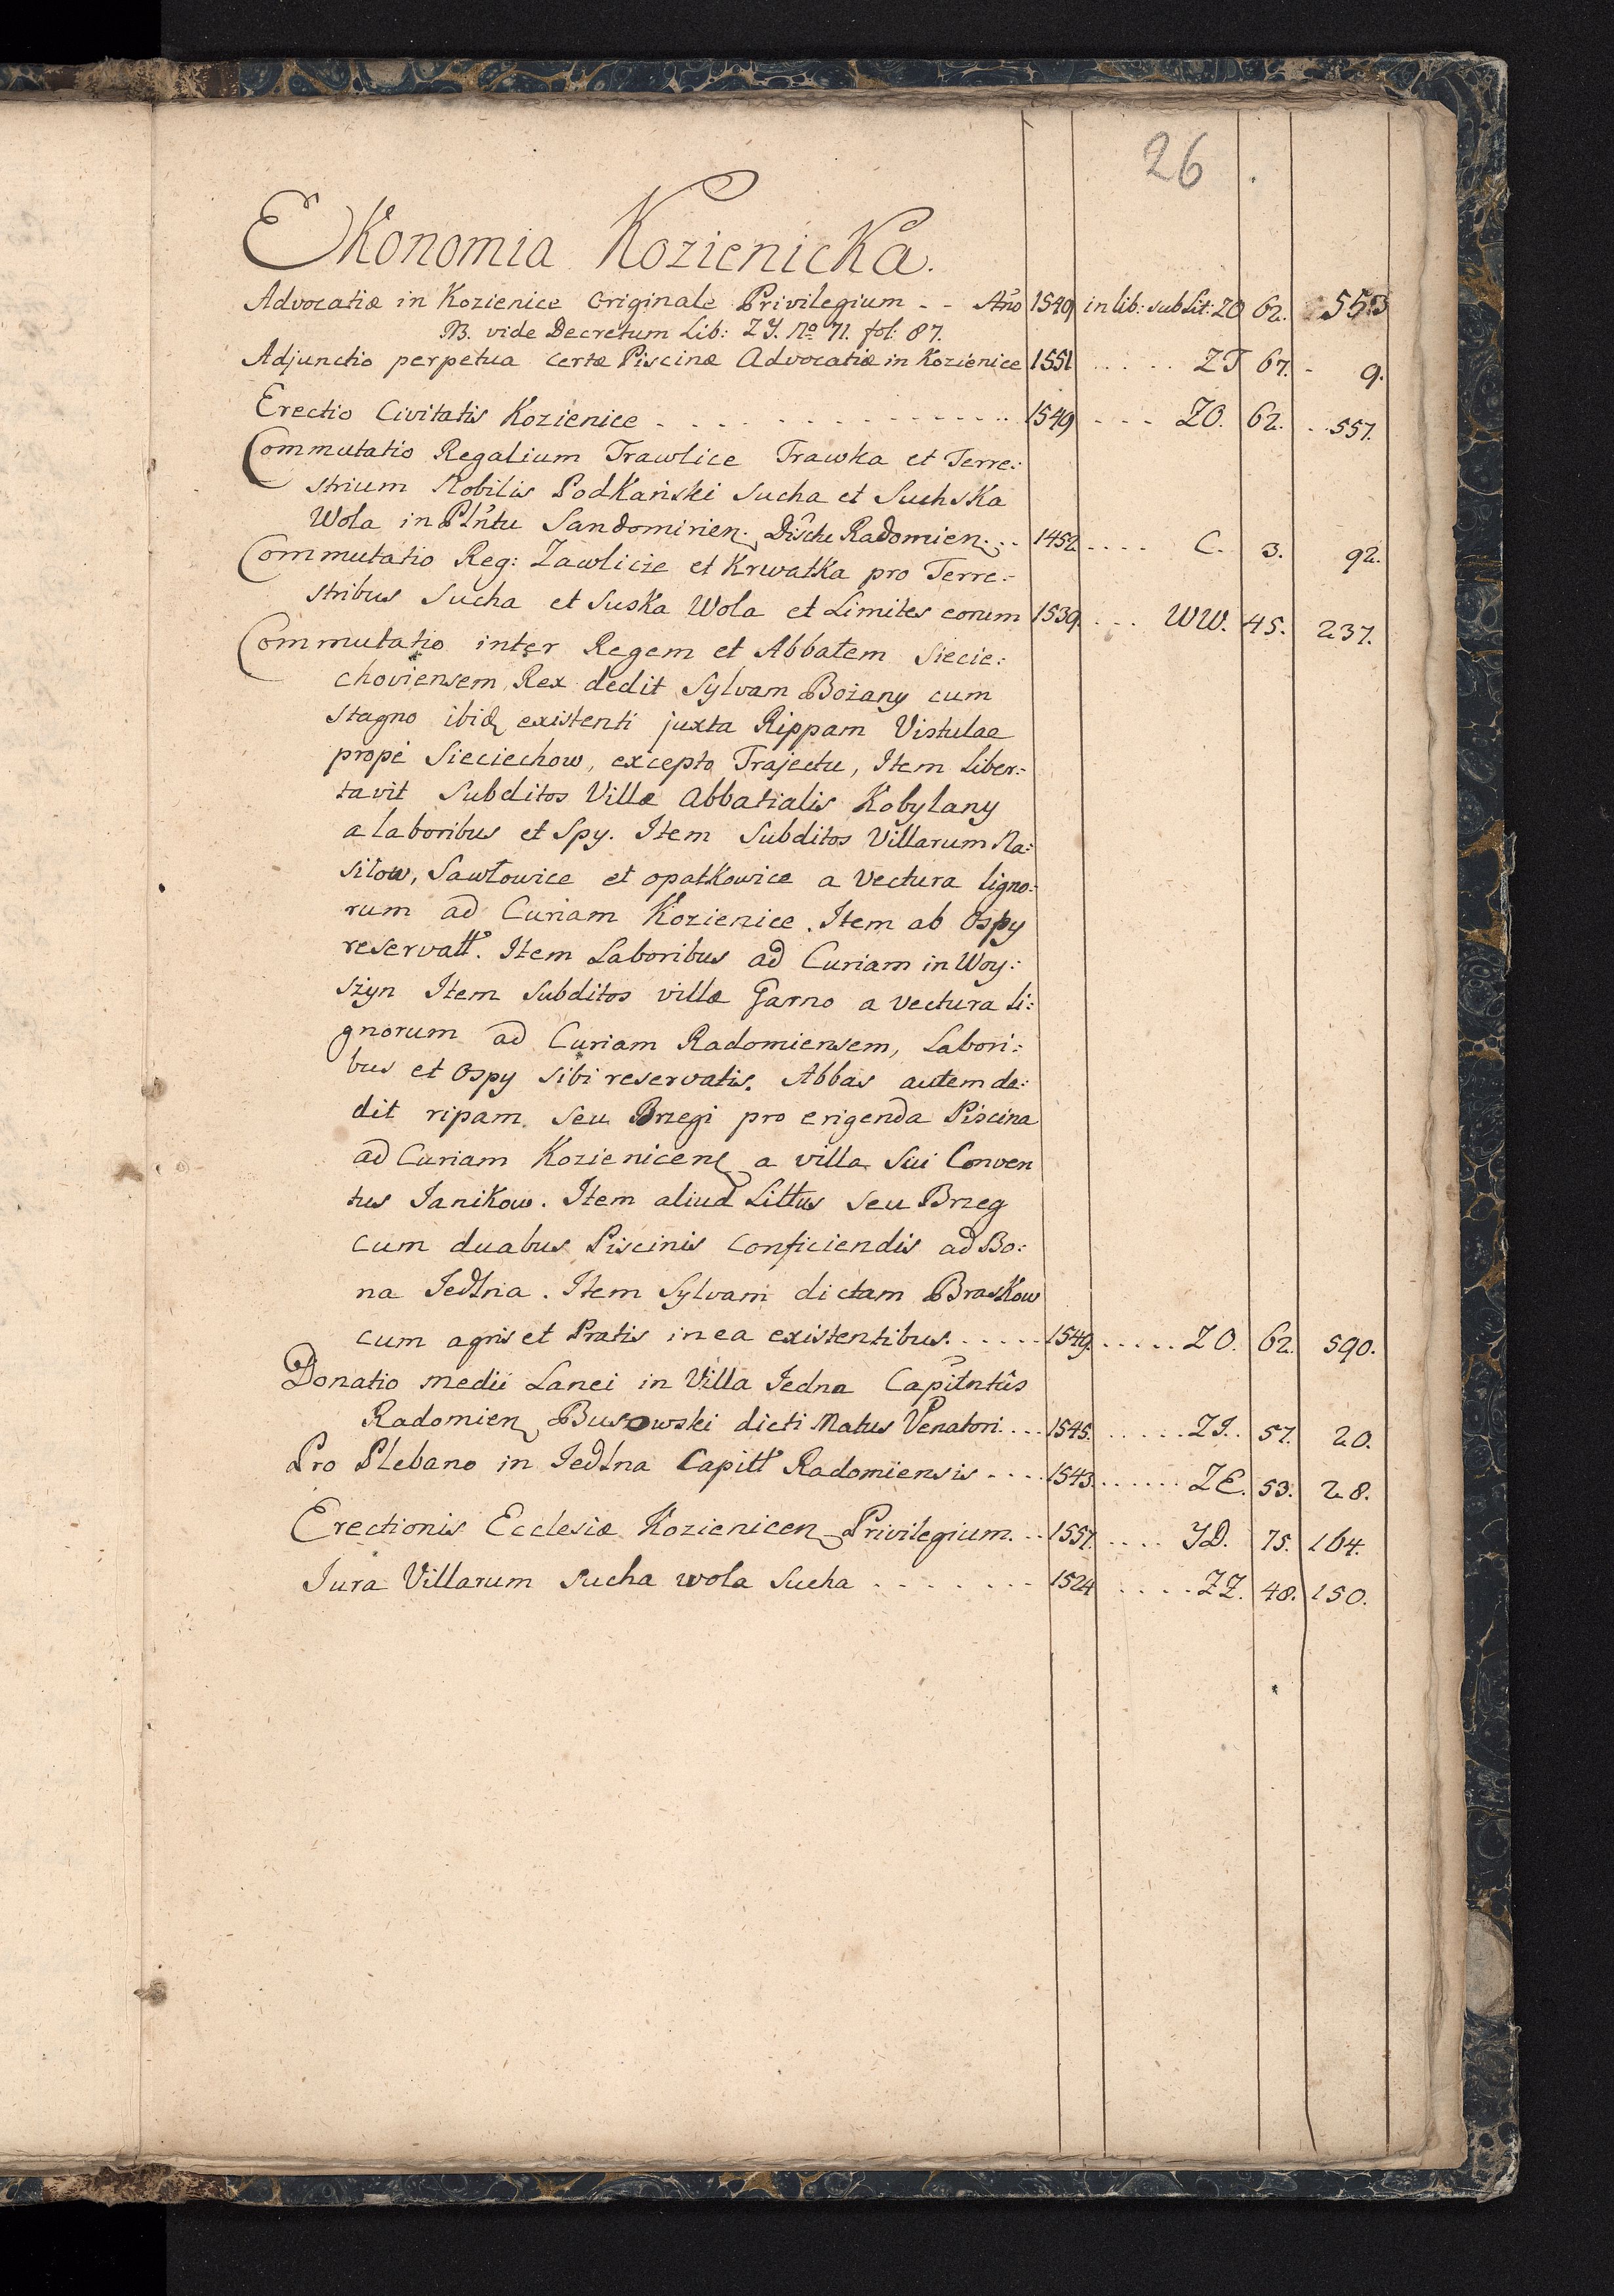 26
Ekonomia Kozienicka.
Advocatiæ in Kozienice Originale Privilegium - - Año 1549 in lib: sub Lit: ZO 62. 553
NB. vide Decretum Lib: ZY. No 71. fol: 87.
Adjunctio perpetua certæ Piscinæ Advocatiæ in Kozienice 1551 . . . . . ZT 67. - 9.
Erectio Civitatis Kozienice . . . . . . . . . . . . 1549 - - - - ZO. 62. . . 557.
Commutatio Regalium Trawlice Trawka et Terre:
strium Nobilis Podkański Sucha et Suchska
Wola in Pln̄tu Sandomirien. Disctu Radomien. . . 1452 . . . . C. 3. 92.
Commutatio Reg: Zawlicie et Krwatka pro Terre:
stribus Sucha et Suska Wola et Limites eorum 1539. . . . WW. 45. 237.
Commutatio inter Regem et Abbatem Siecie:
choviensem, Rex dedit Sylvam Boiany cum
stagno ibid existenti juxta Rippam Vistulae
propè Sieciechow, excepto Trajectu, Item Liber:
tavit Subditos Villæ Abbatialis Kobylany
a laboribus et Spy. Item Subditos Villarum Na:
siłow, Sawłowice et opatkowice a Vectura ligno:
rum ad Curiam Kozienice. Item ab Ospy
reservatt. Item Laboribus ad Curiam in Woy:
szyn Item Subditos villæ Garno a vectura Li:
gnorum ad Curiam Radomiensem, Labori:
bus et Ospy sibi reservatis. Abbas autem de:
dit ripam seu Brzegi pro erigenda Piscina
ad Curiam Kozienicen a villa Sui Conven
tus Janikow. Item aliud Littus seu Brzeg
cum duabus Piscinis conficiendis ad Bo:
na Jedlna. Item Sylvam dictam Braskow
cum agris et Pratis in ea existentibus. . . . . . 1549. . . . . . ZO. 62. 590.
Donatio medii Lanei in Villa Jedna Capitntûs
Radomien Busowski dicti Matus Venatori. . . . 1545. . . . . . ZI. . 57. 20.
Pro Plebano in Jedlna Capitt Radomiensis . . . . 1543. . . . . . . ZE. 53. 28.
Erectionis Ecclesiæ Kozienicen Privilegium. . . 1557. . . . . YD. 75. 164.
Jura Villarum Sucha wola Sucha . . . . . . . 1524 . . . . ZZ. 48. 150.